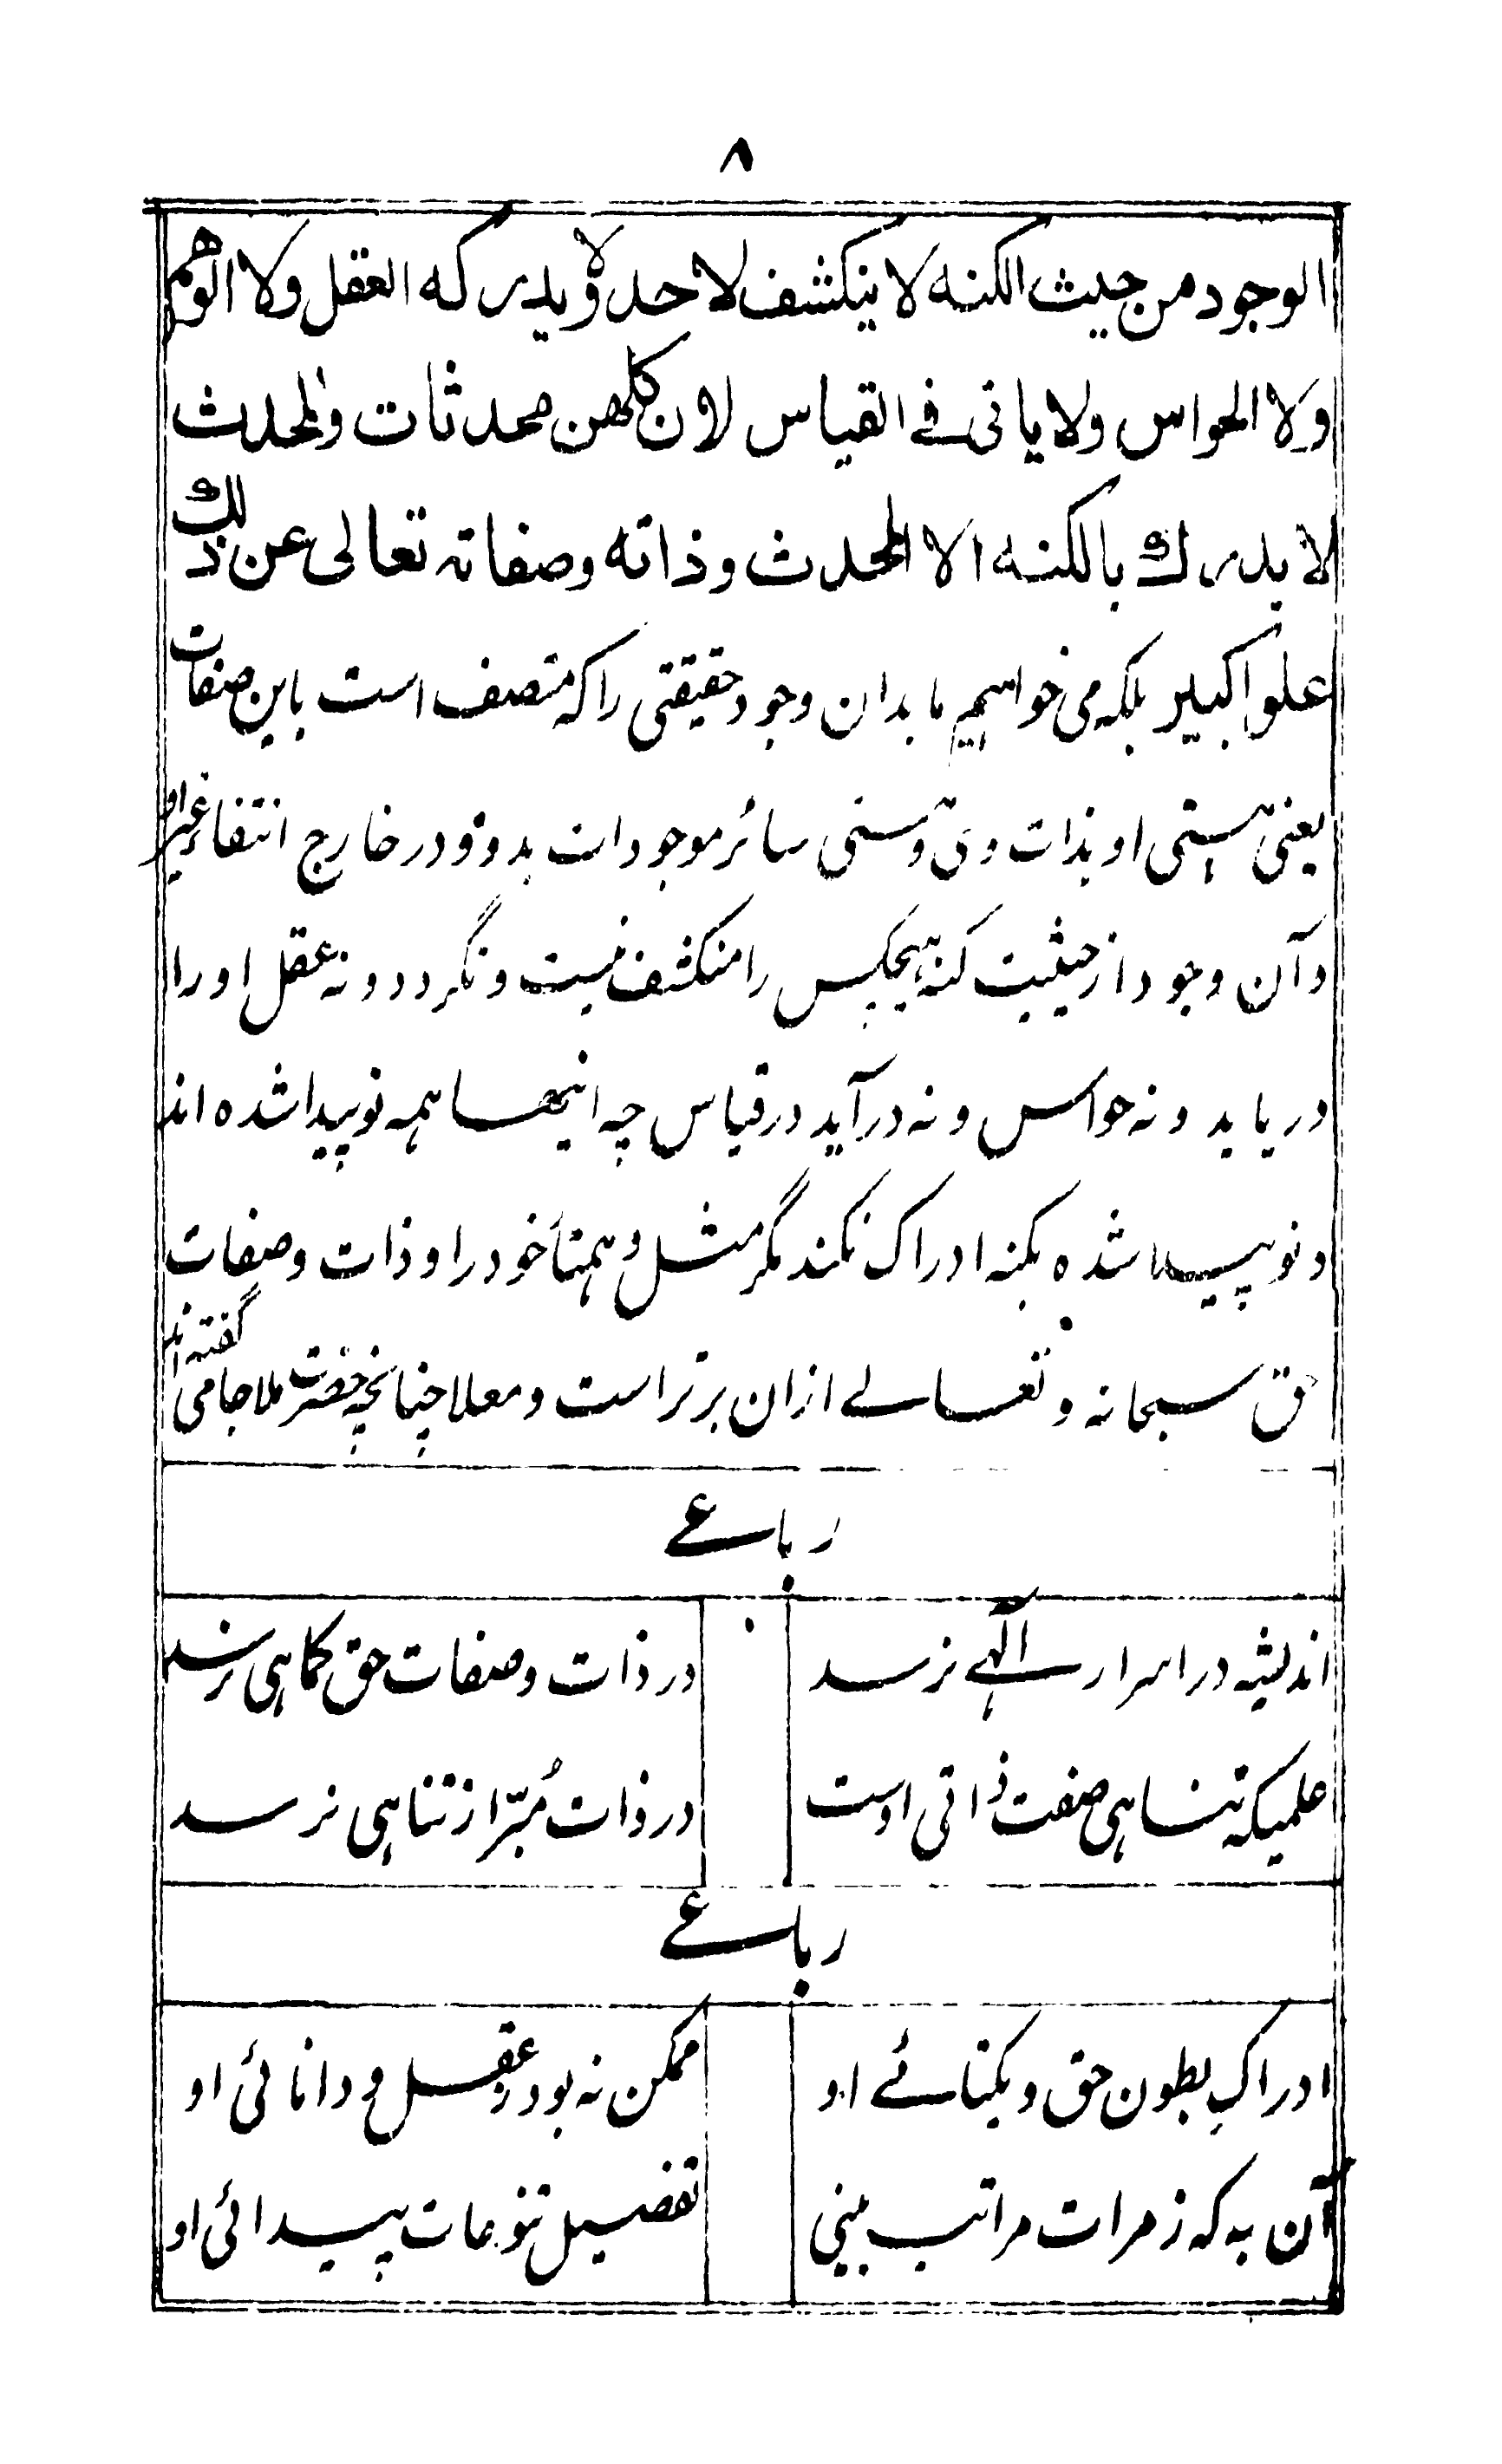 ۸
الوجود من حيث الكنه لا ينكشف لاحد ولا يدركه العقل ولا الوهم
ولا الحواس ولا ياتى فے القياس لان كلهن محدثات والمحدث
لا يدرك بالكنه الا المحدث وذاته وصفاته تعالى عن ذلك
علوا كبير بلکہ می خواہیم ما بدان وجود حقیقتی را کہ متصف است باین صفات
یعنی ہستی او بذات وی و ہستی سائر موجودات بدو و در خارج انتفاء غیر او
و آن وجود از حیثیت کنہ ہیچکس را منکشف نیست و نگردد و نہ عقل او را
دریابد و نہ حواس و نہ درآید در قیاس چہ اینھا ہمہ نو پیدا شدہ اند
و نو پیدا شدہ بکنہ ادراک نکند مگر مثل و ہمتا خود را و ذات و صفات
حق سبحانہ و تعالے ازان برتر است و معلا چنانچہ حضرت ملا جامی گفتہ اند
رباعے
اندیشہ در اسرار الٰہے نرسد در ذات و صفات حق کماہی نرسد
علمیکہ تناہی صفت ذاتی اوست در ذات مُبرّا ز تناہی نرسد
رباعے
ادراکِ بطون حق و یکتائے او ممکن نہ بود ز عقل و دانائی او
آن بہ کہ ز مرات مراتب بینی تفصیل تنوعات پیدائی او